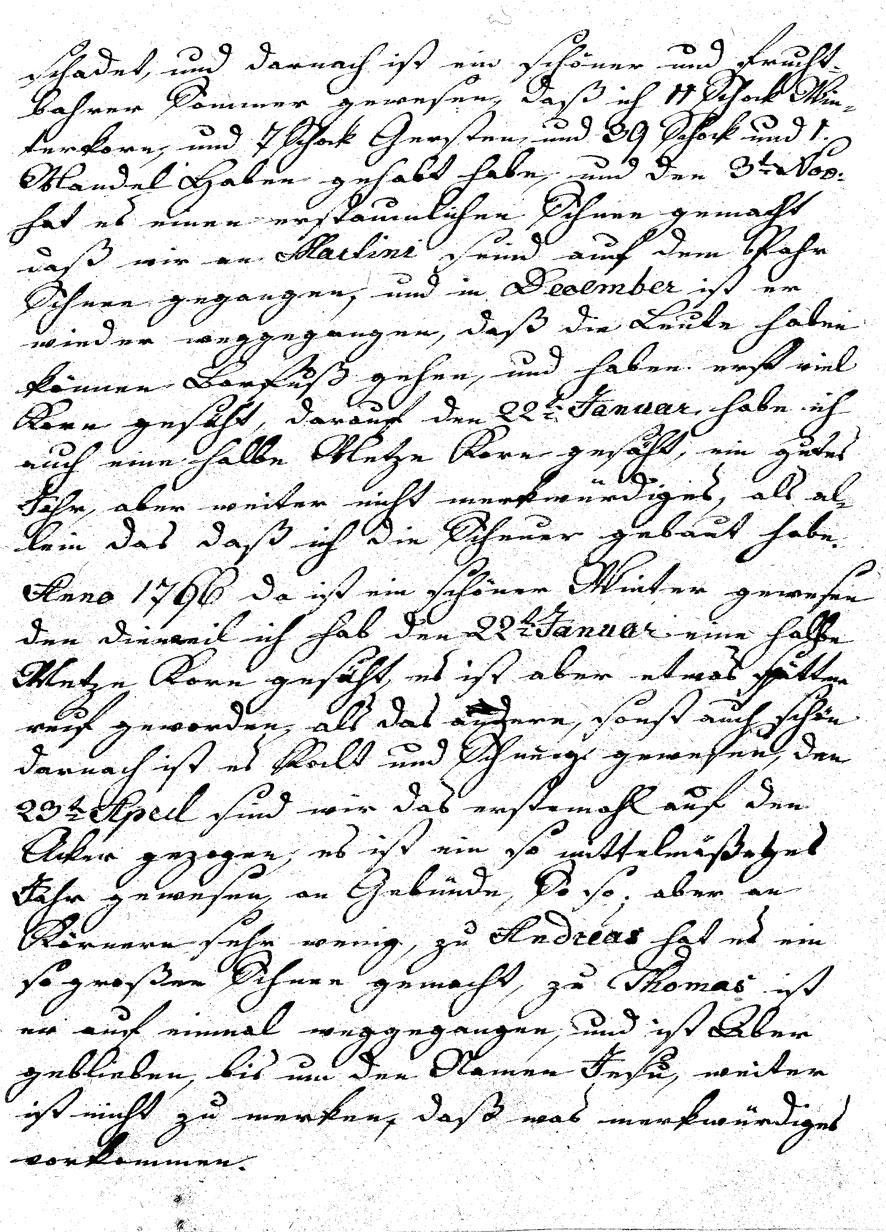 schadet, und darnach ist ein schöner und Frucht-
bahrer Sommer gewesen, daß ich 11 Schock Win-
terkorn, und 7 Schock Gersten, und 39 Schock und 1.
Mandel Haber gehabt habe, und den 3t. Nov:
hat es einen erstaunlichen Schnee gemacht
daß wir an Martini seind auf dem
Schnee gegangen, und in December ist er
wieder weggegangen, daß die Leute haben
können Barfuß gehen, und haben erst viel
Korn gesäht, darauf den 22t. Januar, habe ich
auch eine halbe Metze Korn gesäht, ein gutes
Jahr, aber weiter nicht merkwürdiges, als al-
lein das daß ich die Scheuer gebaut habe.
Anno 1796 da ist ein schöner Winter gewesen
den dieweil ich hab den 22t. Januar eine halbe
Metze Korn gesäht, es ist aber etwas spätter
reif geworden, als das andere, sonst auch schön
darnach ist es Kalt und Schneeig gewesen, den
23t. April sind wir das erstemahl auf den
Acker gezogen, es ist ein so mittelmäßiges
Jahr gewesen, an Gebünde, So so, aber an
Körnern sehr wenig, zu Andreas hat es ein
so großen Schnee gemacht, zu Thomas ist
er auf einmal weggegangen, und ist Aber
geblieben, bis um den Namen Jesu, weiter
ist nicht zu merken, daß was merkwürdiges
vorkommen.